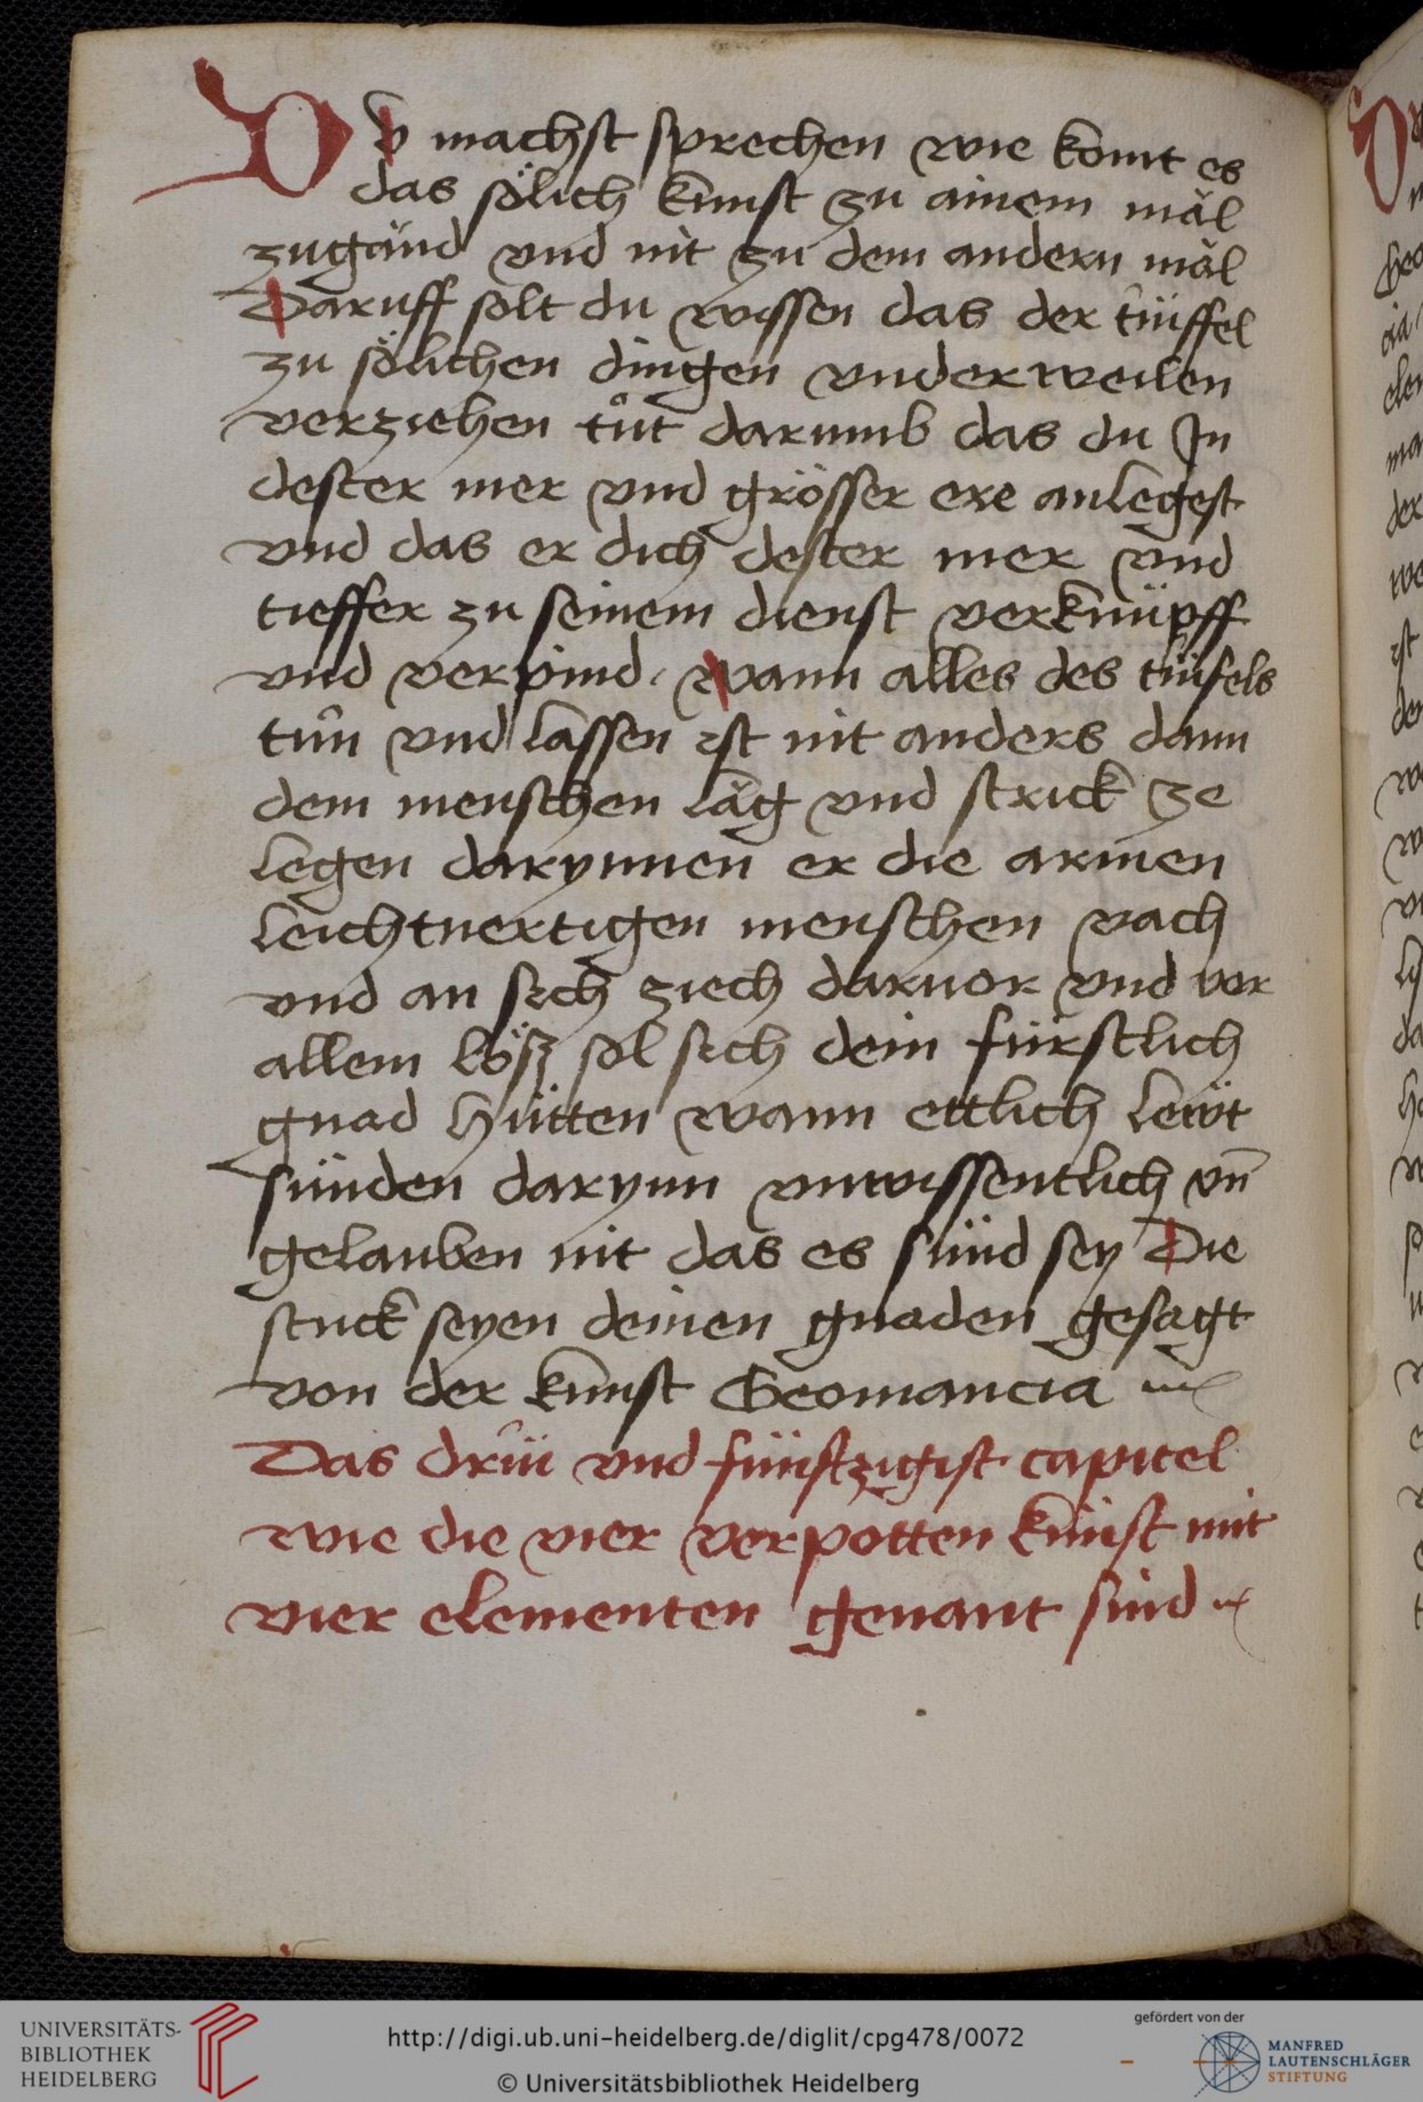 Dv machst sprechen wie komt es
das sölich kunst zu ainem mäl
zugänd vnd nit zu dem andern mäl
Daruff solt du wissen das der tüffel
zu sölichen dingen vnderweilen
verziehen tůt darumb das du In
dester mer vnd grösser ere anlegest
vnd das er dich dester mer vnd
tieffer zu seinem dienst verknüpff
vnd verpind. wann alles des tüfels
tůn vnd lassen ist nit anders dann
dem menschen läg vnd strick ze
legen darynnen er die armen
leichtuertigen menschen vach
vnd an sich ziech daruor vnd vor
allem lösz sol sich dein fürstlich
gnad hütten wann ettlich lewt
sünden darynn vnwissentlich vn̄
gelauben nit das es sünd sey Die
stuck seyen deinen gnaden gesagt
von der kunst Geomancia
Das drü vnd fünftzigist capitel
wie die vier verpotten künst mit
vier elementen genant sind
UNIVERSITÄTS-
BIBLIOTHEK
HEIDELBERG
http://digi.ub.uni-heidelberg.de/diglit/cpg478/0072
© Universitätsbibliothek Heidelberg
gefördert von der
MANFRED
LAUTENSCHLÄGER
STIFTUNG